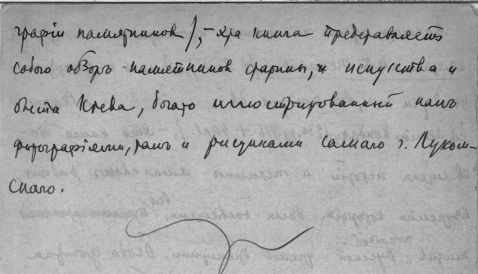 графіи памятниковъ/,- эта книга представляетъ
собою обзоръ памятниковъ старины, и искуства и
быта Кіева, богато иллюстрированный какъ
фотографіями, такъ и рисунками самаго г. Луком-
скаго.